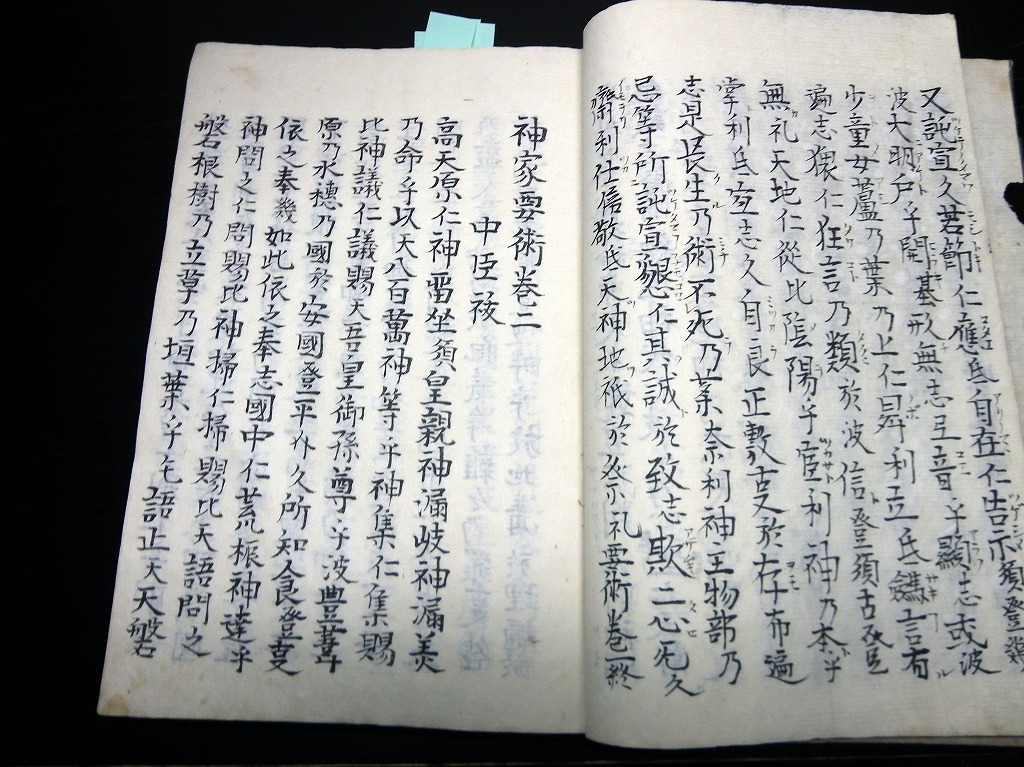 又託宣久若節仁應氐自在仁告示須登雖
波大明戸乎開基形無志主音乎顯志或波
少童女蘆乃葉乃上仁昇利立氐鐫言有
遍志猥仁狂言乃類於波信登須古登
無礼天地仁從比陰陽乎宦利神乃本乎
掌利氐亘志久自良正敷古又於存布遍
志是長生乃術不死乃藥奈利神主物部乃
忌等所託宣懇仁其誠於致志欺二心先久
齋利仕信敬氐天神地祇於祭礼要術巻一終
神家要術巻二
中臣祓
高天原仁神畄坐須皇親神漏岐神漏美
乃命乎以天八百萬神等乎神集仁集賜
比神議仁議賜天吾皇御孫尊乎波豊葦
原乃水穂乃國於安國登平介久所知食登事
依之奉幾如此依之奉志國中仁荒振神達乎
神問之仁問賜比神掃仁掃賜比天語問之
磐根樹乃立草乃垣葉乎毛語止天天磐